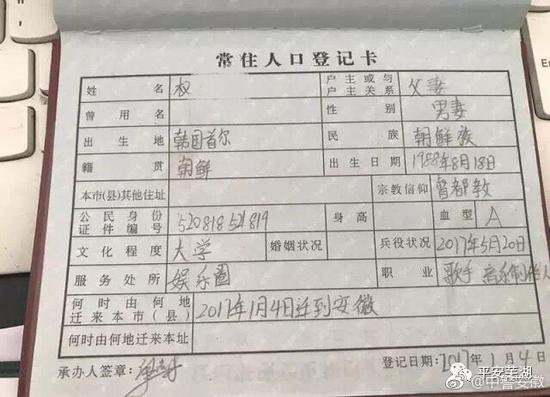 常住人口登记卡
姓名 权 户主或与户主关系 父妻
曾用名 性别 男妻
出生地 韩国首尔 民族 朝鲜族
籍贯 朝鲜 出生日期 1988年8月18日
本市(县)其他住址 宗教信仰
公民身份证件编号 520818521814 身高 血型 A
文化程度 大学 婚姻状况 兵役状况 2017年5月20日
服务处所 娱乐圈 职业 歌手 音乐制作人
何时由何地迁来本市(县) 2017年1月4日迁到安徽
何时由何地迁来本址
承办人签章: 登记日期:2017年1月4日
@平安芜湖
@中警安徽